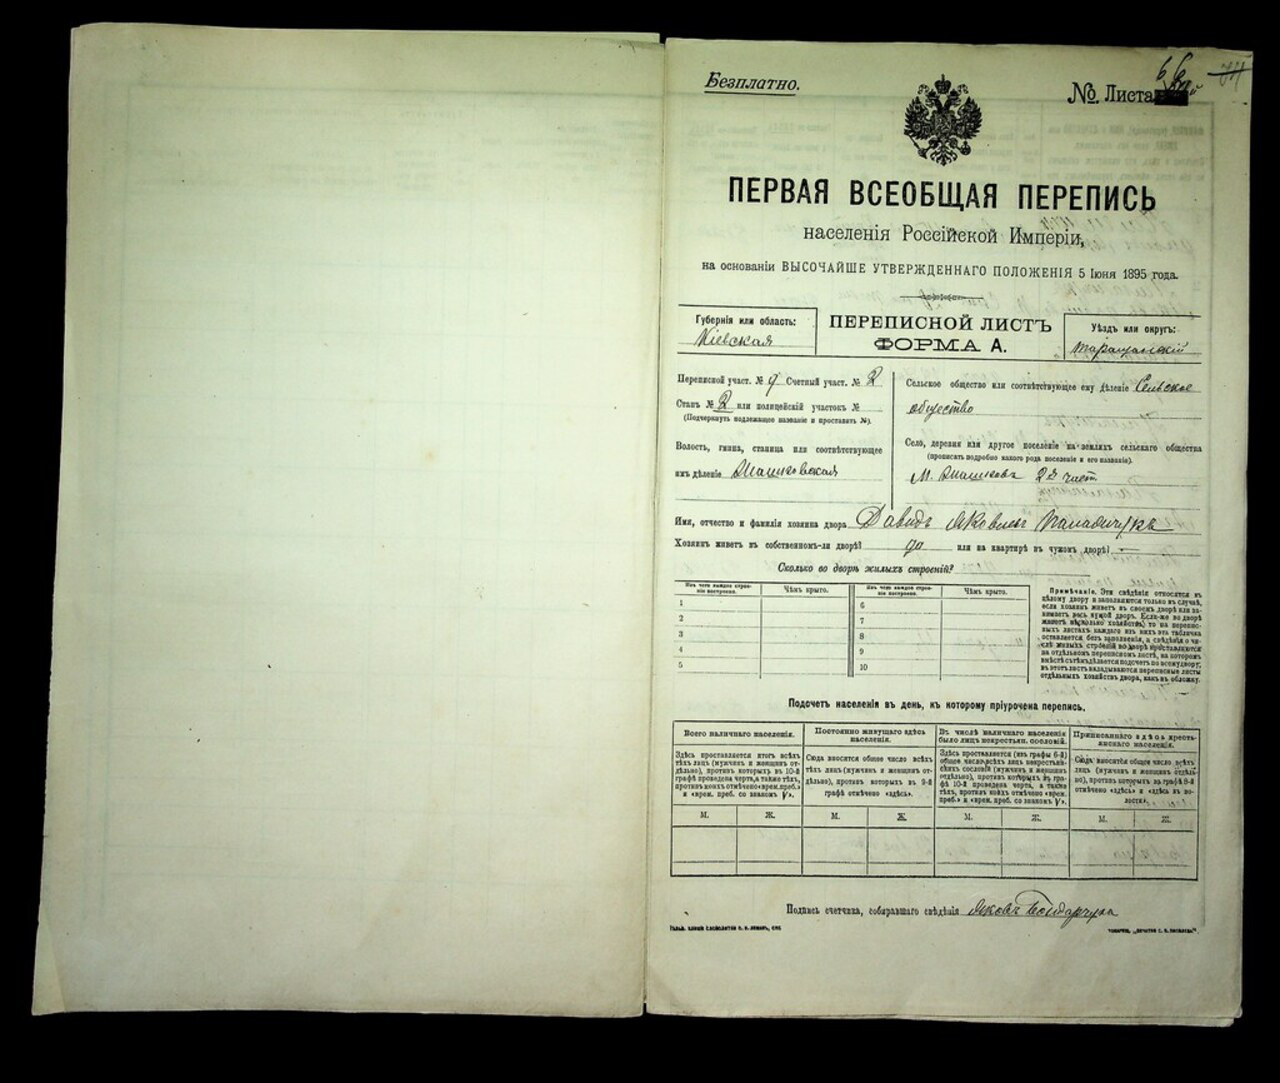 Безплатно.
№ Листа
ПЕРВАЯ ВСЕОБЩАЯ ПЕРЕПИСЬ
населенія Россійской Имперіи,
на основаніи ВЫСОЧАЙШЕ УТВЕРЖДЕННАГО ПОЛОЖЕНІЯ 5 Іюня 1895 года.
Губернія или область:
Кіевская
ПЕРЕПИСНОЙ ЛИСТЪ
ФОРМА А.
Уѣздъ или округъ:
Таращанскій
Переписной участ. № 9 Счетный участ. № 2
Станъ № 2 или полицейскій участокъ №
(Подчеркнуть надлежащее названіе и проставить №).
Волость, гмина, станица или соотвѣтствующее
имъ дѣленіе
Сельское общество или соотвѣтствующее ему дѣленіе Сельское
общество
Село, деревня или другое поселеніе на земляхъ сельскаго общества
(прописать подробно какого рода поселеніе и его названіе).
М. 2я част
Имя, отчество и фамилія хозяина двора Давидъ Яковлевъ
Хозяинъ живетъ въ собственномъ-ли дворѣ? да или на квартирѣ въ чужомъ дворѣ? —
Сколько во дворѣ жилыхъ строеній?
Изъ чего каждое строеніе построено.
Чѣмъ крыто.
Изъ чего каждое строеніе построено.
Чѣмъ крыто.
1
2
3
4
5
6
7
8
9
10
Примѣчаніе. Эти свѣдѣнія относятся къ
цѣлому двору и заполняются только въ случаѣ,
если хозяинъ живетъ въ своемъ дворѣ или за-
нимаетъ весь чужой дворъ. Если-же во дворѣ
живетъ нѣсколько хозяйствъ, то на перепис-
ныхъ листахъ каждаго изъ нихъ эта табличка
оставляется безъ заполненія, а свѣдѣнія о чи-
слѣ жилыхъ строеній во дворѣ проставляются
на отдѣльномъ переписномъ листѣ, на которомъ
вмѣстѣ съ тѣмъ дѣлается подсчетъ по всему двору;
въ этотъ листъ вкладываются переписные листы
отдѣльныхъ хозяйствъ двора, какъ въ обложку.
Подсчетъ населенія въ день, къ которому пріурочена перепись.
Всего наличнаго населенія.
Здѣсь проставляется итогъ всѣхъ
тѣхъ лицъ (мужчинъ и женщинъ от-
дѣльно), противъ которыхъ въ 10-й
графѣ проведена черта, а также тѣхъ,
противъ коихъ отмѣчено «врем. преб.»
и «врем. преб. со знакомъ V».
Постоянно живущаго здѣсь
населенія.
Сюда вносится общее число всѣхъ
тѣхъ лицъ (мужчинъ и женщинъ от-
дѣльно), противъ которыхъ въ 9-й
графѣ отмѣчено «здѣсь».
Въ числѣ наличнаго населенія
было лицъ некрестьян. сословій.
Здѣсь проставляется (изъ графы 6-й)
общее число всѣхъ лицъ некрестьян-
скихъ сословій (мужчинъ и женщинъ
отдѣльно), противъ которыхъ въ гра-
фѣ 10-й проведена черта, а также
тѣхъ, противъ коихъ отмѣчено «врем.
преб.» и «врем. преб. со знакомъ V».
Приписаннаго здѣсь кресть-
янскаго населенія.
Сюда вносится общее число всѣхъ
лицъ (мужчинъ и женщинъ отдѣль-
но), противъ которыхъ въ графѣ 8-й
отмѣчено «здѣсь» и «здѣсь въ во-
лости».
М. Ж. М. Ж. М. Ж. М. Ж.
Подпись счетчика, собиравшаго свѣдѣнія Яковъ Бондарчукъ